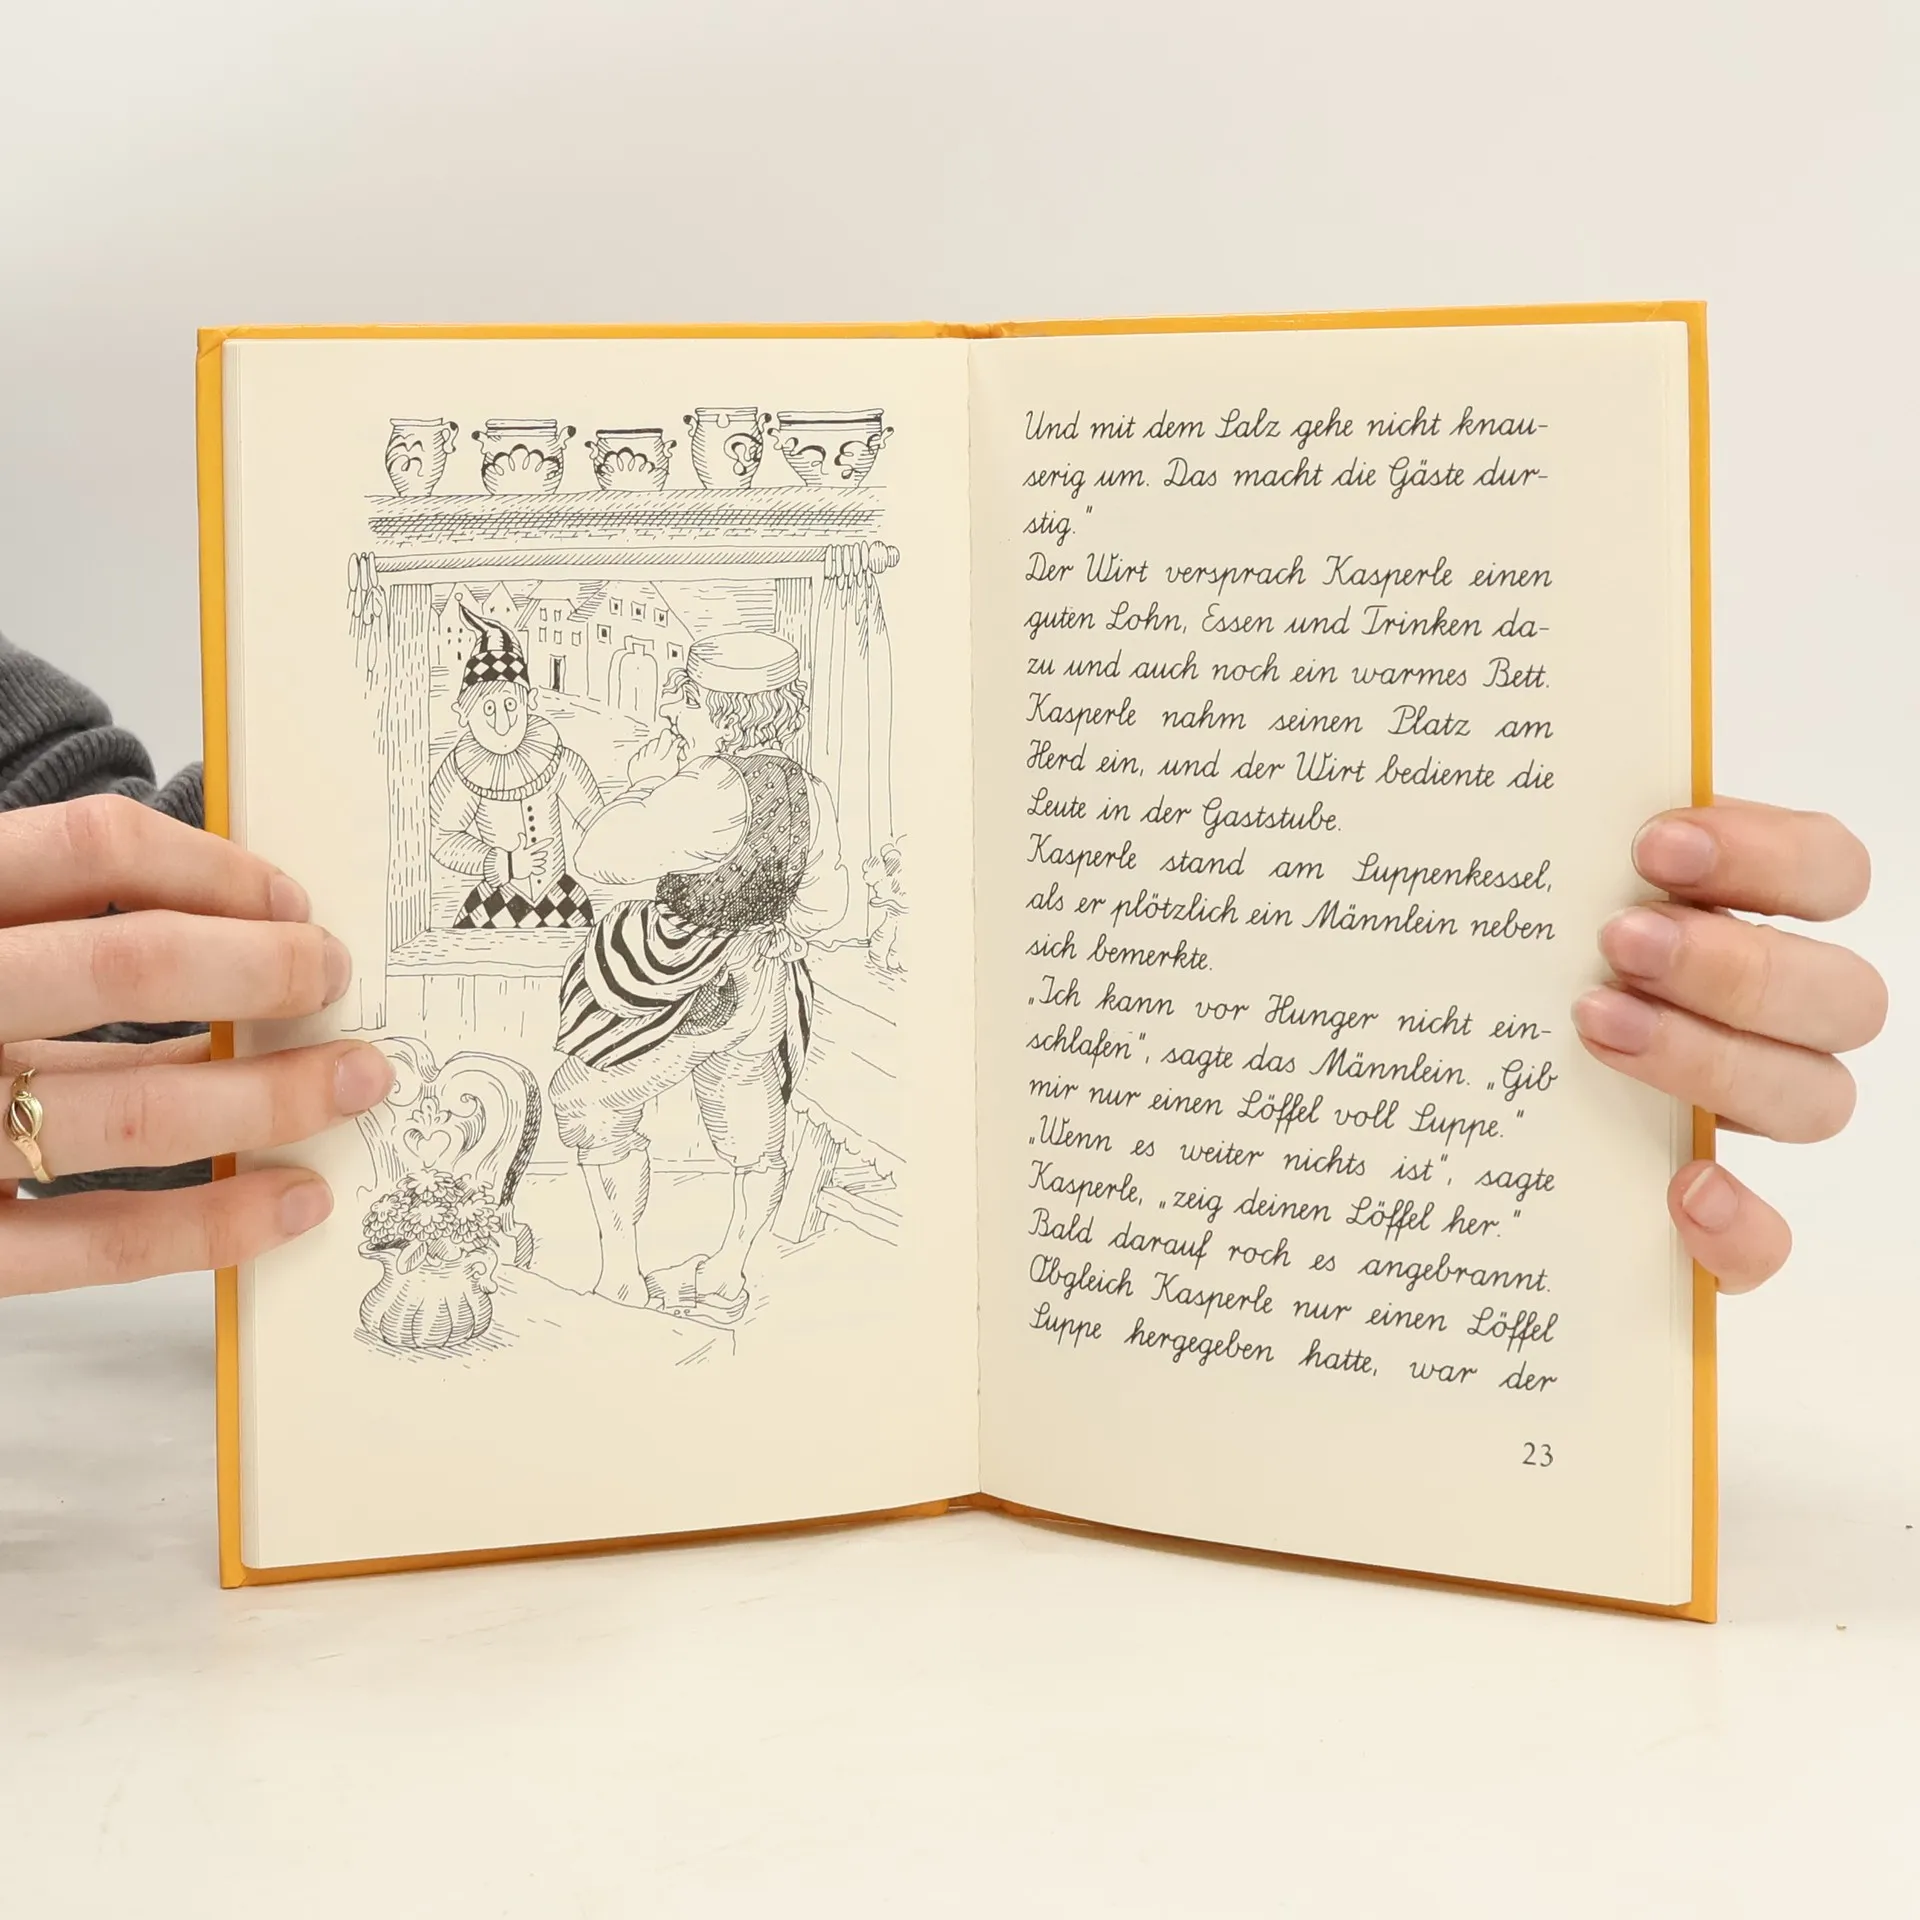 Und mit dem Salz gehe nicht knau-
serig um. Das macht die Gäste dur-
stig."
Der Wirt versprach Kasperle einen
guten Lohn, Essen und Trinken da-
zu und auch noch ein warmes Bett.
Kasperle nahm seinen Platz am
Herd ein, und der Wirt bediente die
Leute in der Gaststube.
Kasperle stand am Suppenkessel,
als er plötzlich ein Männlein neben
sich bemerkte.
„Ich kann vor Hunger nicht ein-
schlafen", sagte das Männlein. „Gib
mir nur einen Löffel voll Suppe."
„Wenn es weiter nichts ist", sagte
Kasperle, „zeig deinen Löffel her."
Bald darauf roch es angebrannt.
Obgleich Kasperle nur einen Löffel
Suppe hergegeben hatte, war der
23